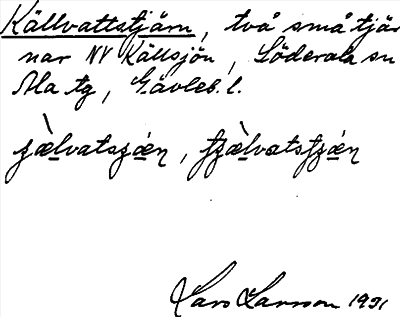 Källvattstjärn, två små tjär
nar NV Källsjön, Söderala sn
Ala tg, Gävleb. l.
Lars Larsson 1931